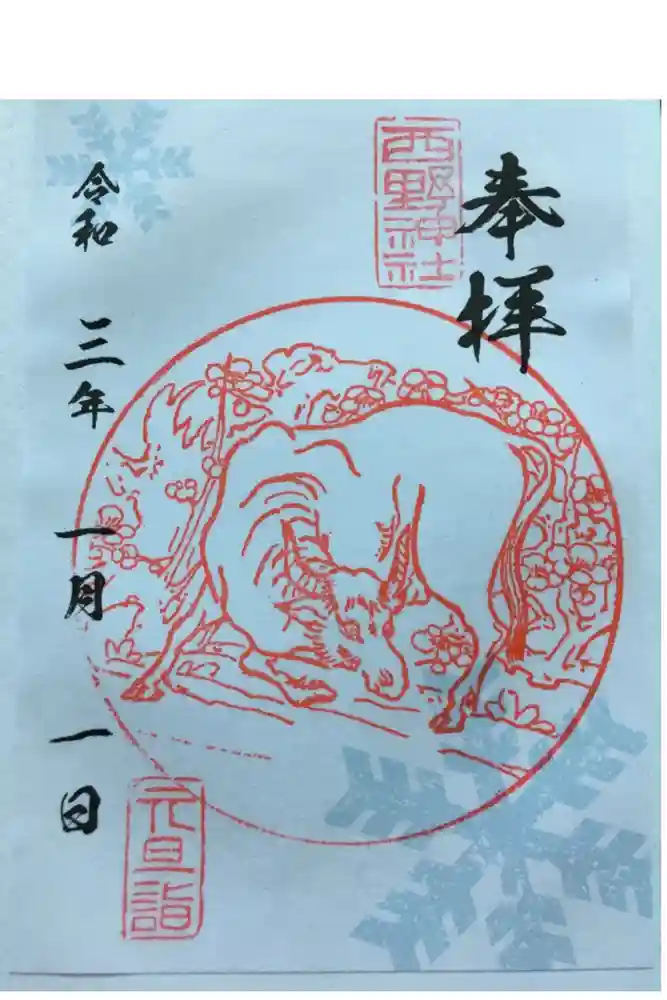 奉拝
西野神社
令和三年一月一日
元旦詣